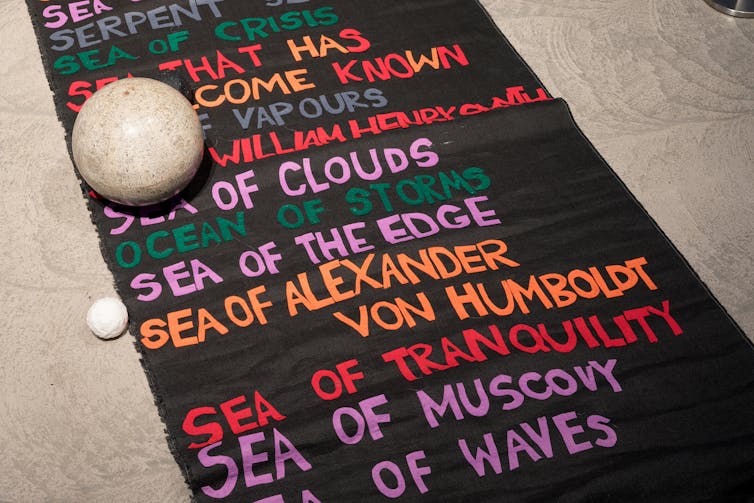 SEA OF
SERPENT SEA
SEA OF CRISIS
SEA THAT HAS
COME KNOWN
OF VAPOURS
WILLIAM HENRY SMYTH
SEA OF CLOUDS
OCEAN OF STORMS
SEA OF THE EDGE
SEA OF ALEXANDER
VON HUMBOLDT
SEA OF TRANQUILITY
SEA OF MUSCOVY
SEA OF WAVES